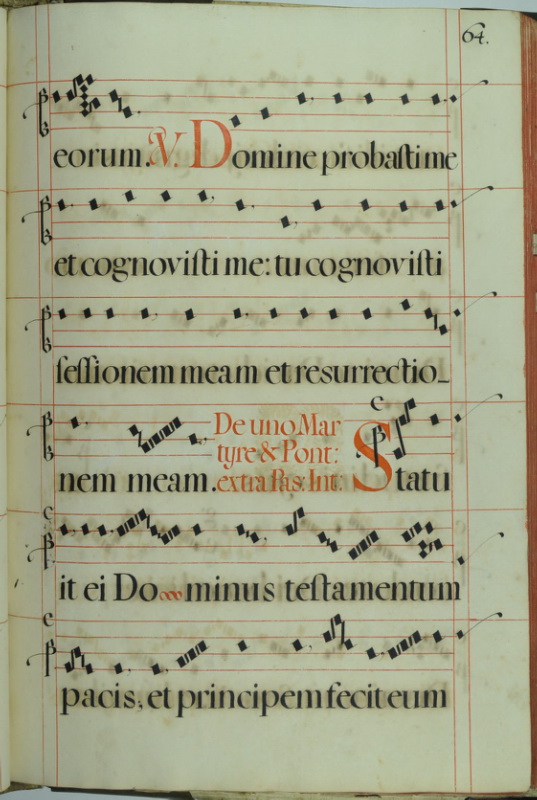 64.
eorum. V. Domine probasti me
et cognovisti me: tu cognovisti
sessionem meam et resurrectio_
nem meam. De uno Mar
tyre & Pont:
extra Pas: Int: Statu
it ei Do minus testamentum
pacis, et principem fecit eum